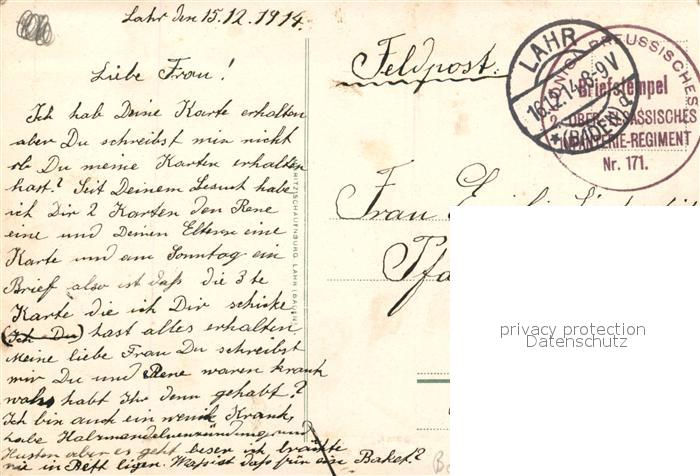 Lahr den 15.12.1914.
Liebe Frau!
Ich hab Deine Karte erhalten
aber Du schreibst mir nicht
ob Du meine Karten erhalten
hast? Seit Deinem Besuch habe
ich Dir 2 Karten den Rene
eine und Deinen Eltern eine
Karte und am Sonntag ein
Brief also ist daß die 3te
Karte die ich Dir schicke
(Ich Du) hast alles erhalten
Meine liebe Frau Du schreibst
mir Du und Rene waren krank
was habt Ihr denn gehabt?
Ich bin auch ein wenik Krank,
habe Halsmandelnenzündung und
Husten aber es geht beser ich
nie in Bett ligen. Was ist daß für ein Baket?
Feldpost.
LAHR
16.12.14.8-9V
*(BADEN)
PREUSSISCHES
Briefstempel
2. OBER-ELSÄSSISCHES
INFANTERIE-REGIMENT
Nr. 171.
Frau
SCHAUENBURG LAHR (BADEN)
privacy protection
Datenschutz